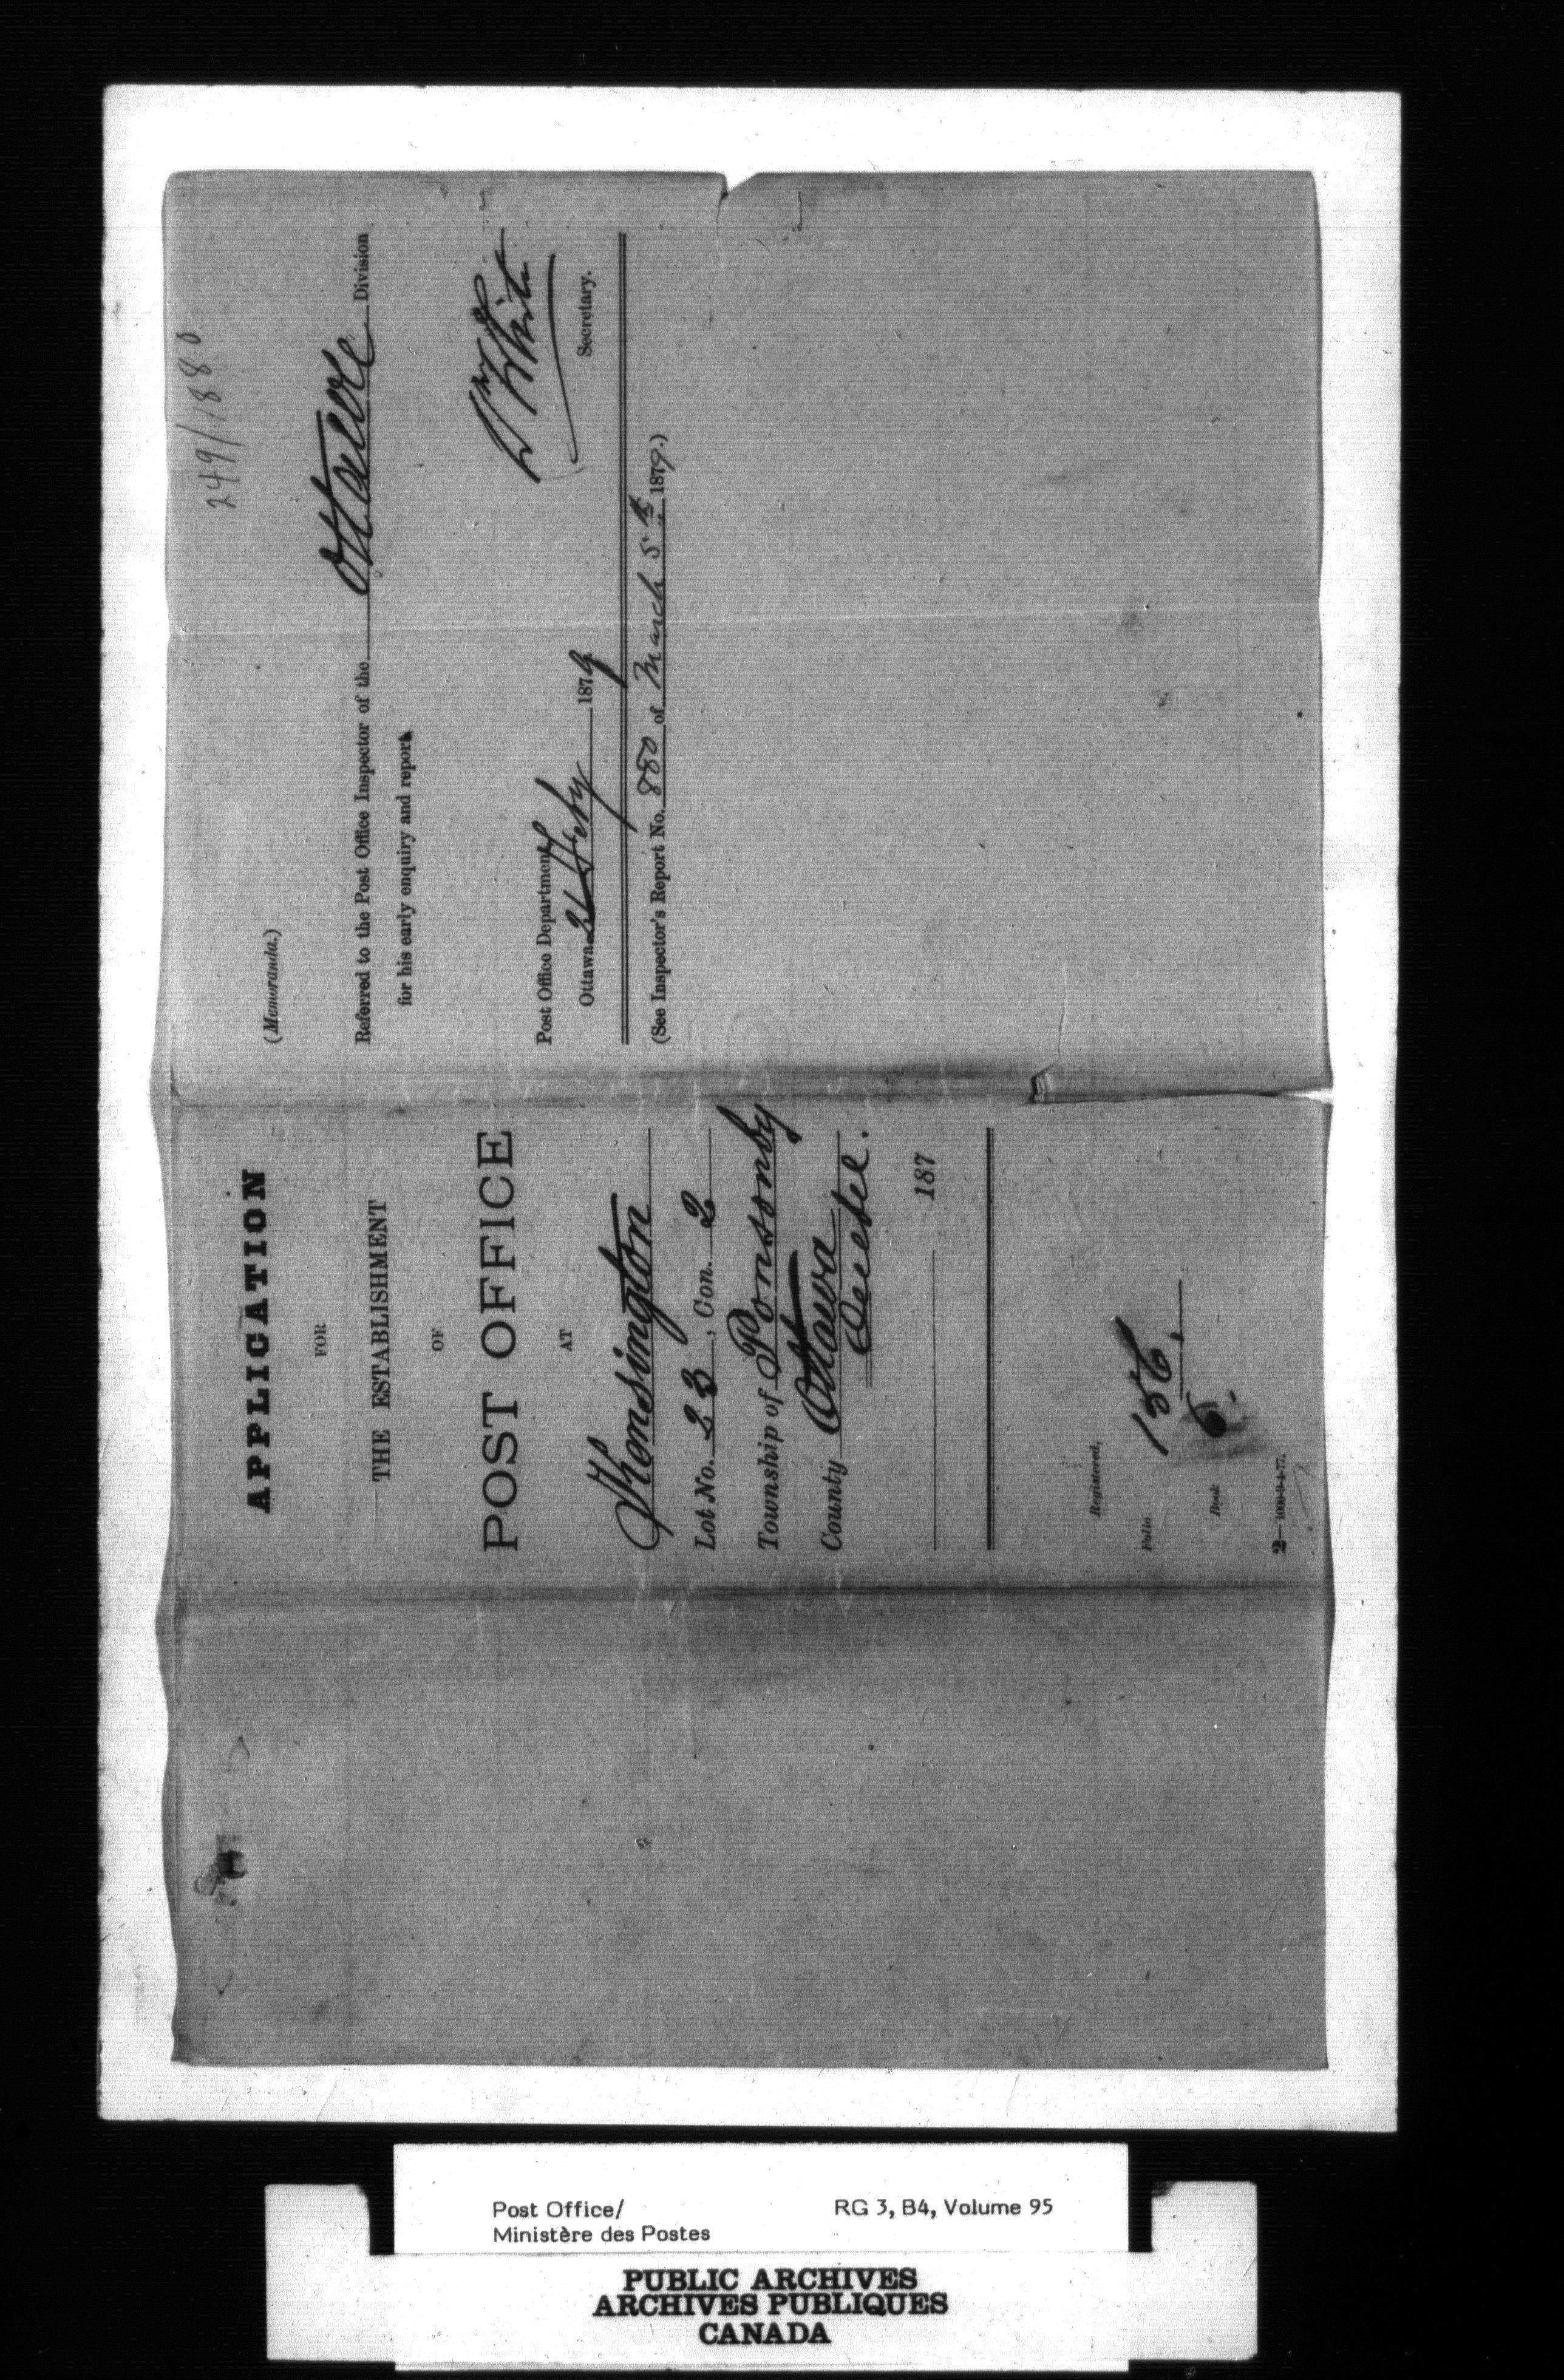 APPLICATION
FOR
THE ESTABLISHMENT
OF
POST OFFICE
AT
Kensington
Lot No. 23, Con. 2
Township of Ponsonby
County Ottawa
Quebec.
187
Registered,
Folio 156.
Book 6.
2—1000-9-4-77.
249/1880
(Memoranda.)
Referred to the Post Office Inspector of the Ottawa Division
for his early enquiry and report
Wm White
Secretary.
Post Office Department,
Ottawa 21 Feby 1879
(See Inspector's Report No. 880 of March 5th 1879.)
Post Office/ RG 3, B4, Volume 95
Ministère des Postes
PUBLIC ARCHIVES
ARCHIVES PUBLIQUES
CANADA